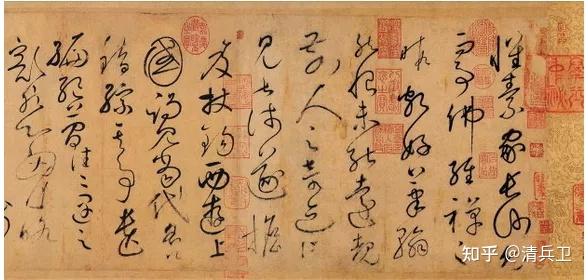 懷素家長沙幼
而事佛經禪之
暇頗好筆翰
然恨未能遠覩
前人之奇迹所
見甚淺遂擔
笈杖錫西遊上
國謁見當代名公
錯綜其事遺
編絶簡往往遇之
豁然心胸略
知乎 @清兵卫